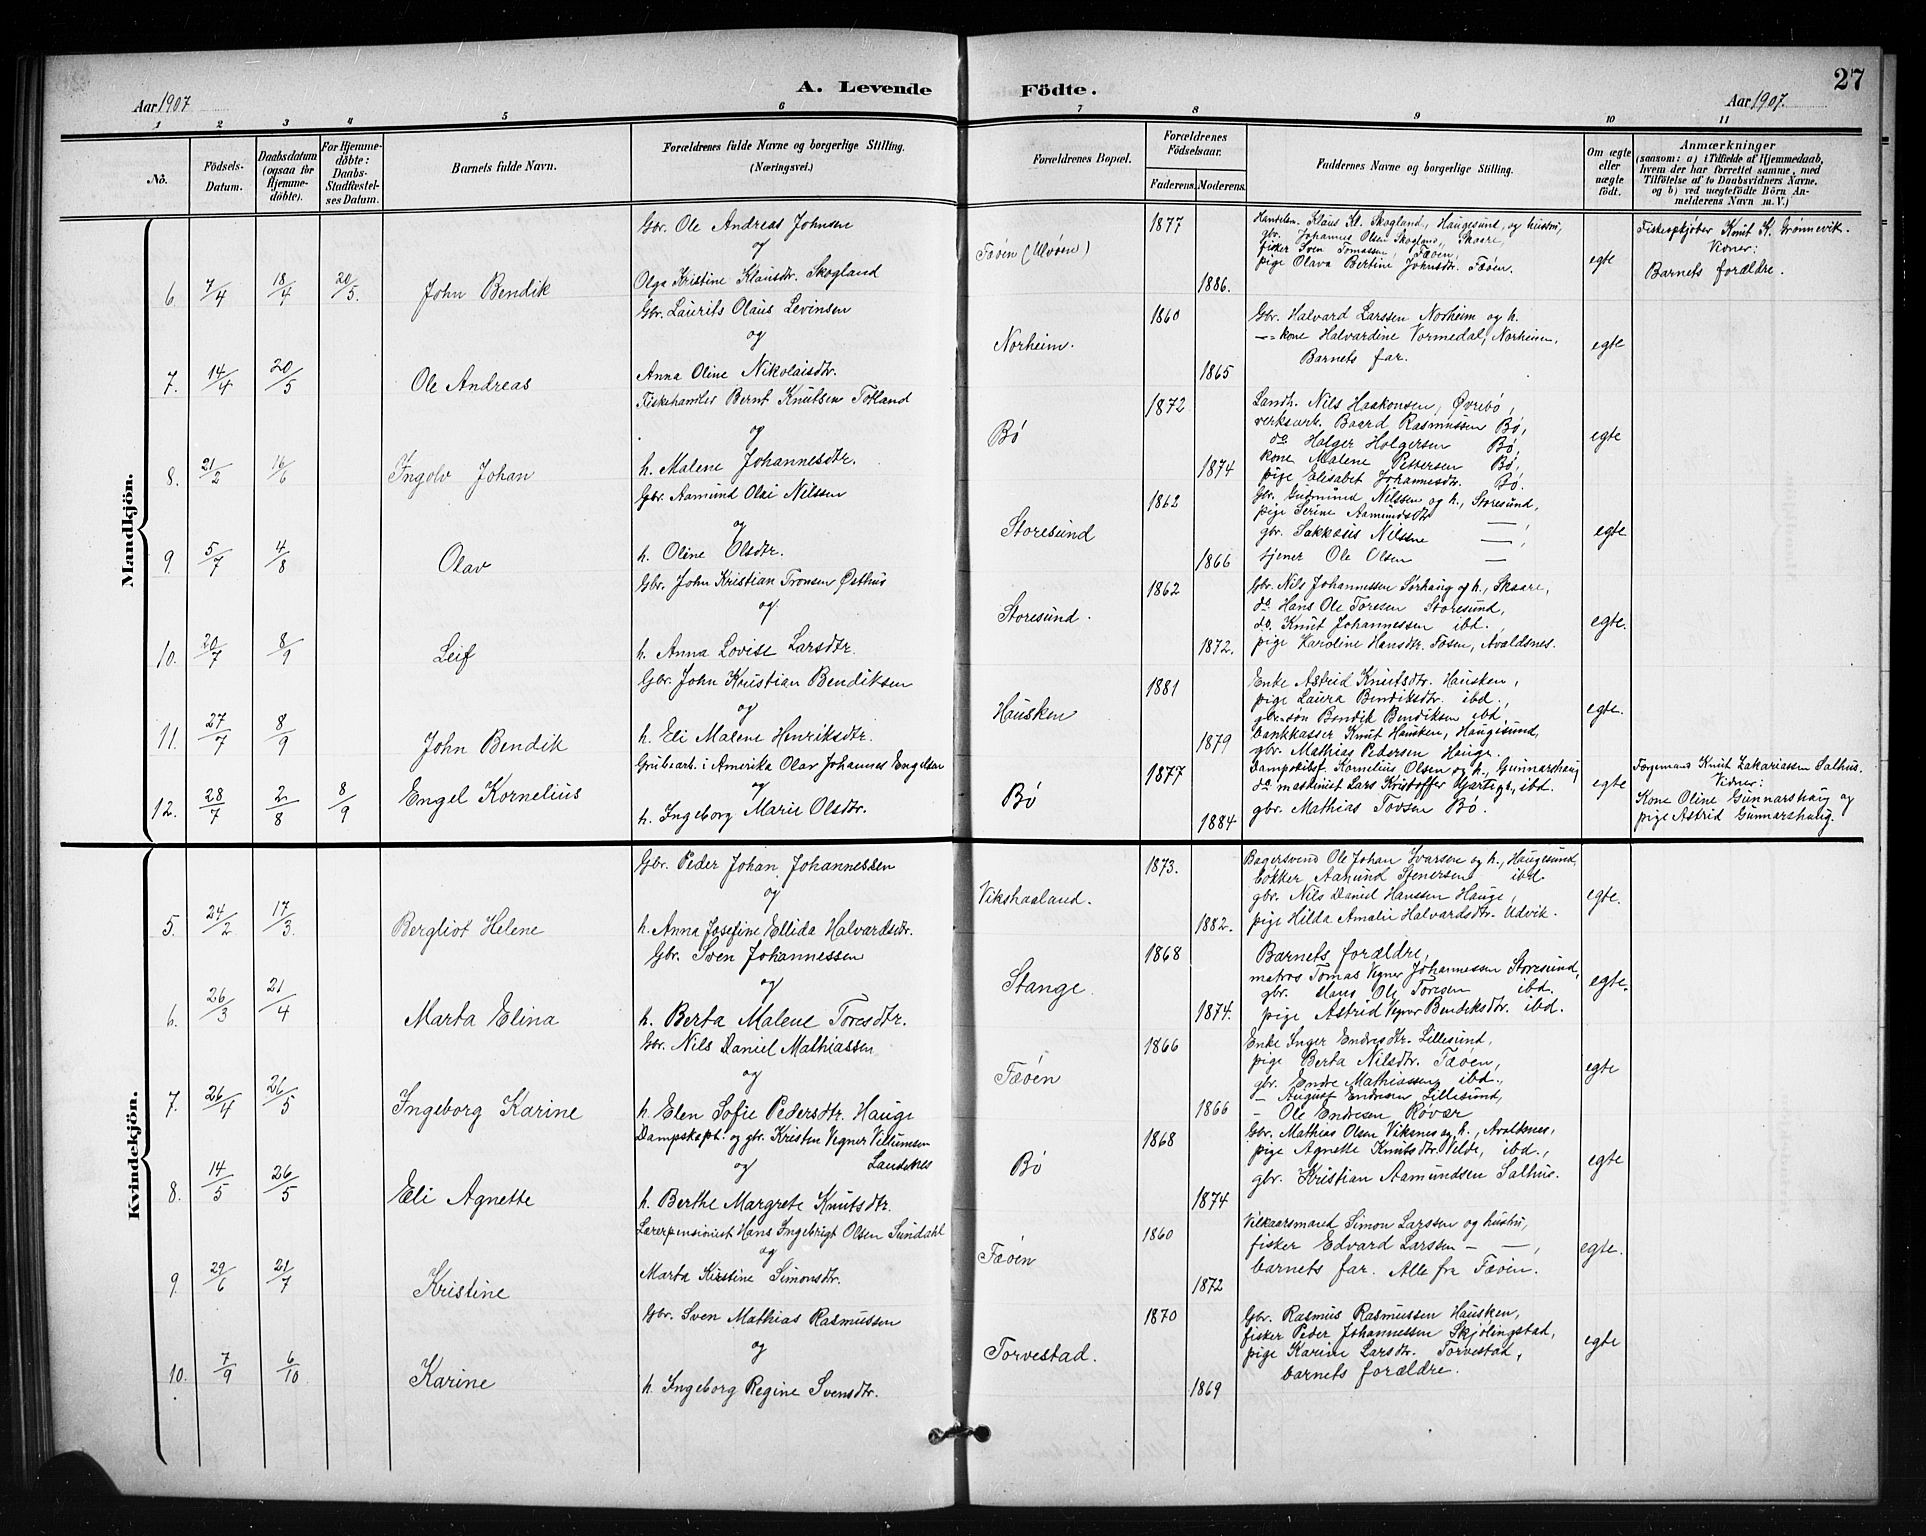 A. Levende Födte.
27
Aar 1907
Aar 1907.
1 2 3 4 5 6 7 8 9 10 11
No.
Födsels-Datum.
Daabsdatum (ogsaa for Hjemmedöbte).
For Hjemmedöbte: Daabs-Stadfæstelses Datum.
Barnets fulde Navn.
Forældrenes fulde Navne og borgerlige Stilling.
(Næringsvei.)
Forældrenes Bopæl.
Forældrenes Födselsaar.
Faderens. Moderens.
Faddernes Navne og borgerlige Stilling.
Om ægte eller uægte födt.
Anmærkninger
(saasom: a) i Tilfælde af Hjemmedaab,
hvem der har forrettet samme, med
Tilföielse af to Daabsvidners Navne,
og b) ved uægtefödte Börn An-
melderens Navn m. V.)
Mandkjön.
6. 7/4 18/4 20/5. John Bendik
Gbr. Ole Andreas Johnsen
og
Olga Kristine Klausdtr. Skogland
Føøen (Ulvøen)
1877
1886.
Handelsm. Klaus Kl. Skogland, Haugesund, og hustru,
gbr. Johannes Olsen Skogland, Skaare,
fisker Sven Tomassen, Fæøen,
pige Olava Bertine Johnsdtr. Fæøen.
egte
Fiskeopkjøber Knut K. Grønnevik.
Vidner:
Barnets forældre.
7. 14/4 20/5 Ole Andreas
Gbr. Laurits Olaus Levinsen
og
Anna Oline Nikolaisdtr.
Norheim.
1860
1865
Gbr. Halvard Larssen Norheim og h.
kone Halvardine Vormedal, Norheim,
Barnets far.
egte
8. 21/2 16/6 Ingolv Johan
Fiskehandler Bernt Knutsen Totland
og
h. Malene Johannesdtr.
Bø
1872
1874
Landh. Nils Haakonsen, Øvrebø,
verksarb. Baard Rasmussen Bø,
do Holger Holgersen Bø,
kone Malene Pettersen Bø,
pige Elisabet Johannesdtr. Bø.
egte
9. 5/7 4/8 Olav
Gbr. Aamund Olai Nilssen
og
h. Oline Olsdtr.
Storesund
1862
1866
Gbr. Gudmund Nilssen og h., Storesund,
pige Serine Aamundsdtr — ,
gbr. Sakkæus Nilssen — ,
tjener Ole Olsen —
egte
10. 20/7 8/9 Leif
Gbr. John Kristian Tronsen Østhus
og
h. Anna Lovise Larsdtr.
Storesund.
1862
1872.
Gbr. Nils Johannessen Sørhaug og h., Skaare,
do. Hans Ole Toresen Storesund,
do. Knut Johannessen ibd.,
pige Karoline Hansdtr. Fosen, Avaldsnes.
egte.
11. 27/7 8/9 John Bendik
Gbr. John Kristian Bendiksen
og
h. Eli Malene Henriksdtr.
Hausken
1881
1879
Enke Astrid Knutsdtr. Hausken,
pige Laura Bendiksdtr. ibd.,
gbr.søn Bendik Bendiksen ibd,
bankkasser Knut Hausken, Haugesund,
gbr. Mathias Pedersen Hauge.
egte.
12. 28/7 2/8 8/9 Engel Kornelius
Grubearb. i Amerika Olav Johannes Engelsen
og
h. Ingeborg Marie Olsdtr.
Bø
1877
1884
Dampskibsf. Kornelius Olsen og h., Gunnarshaug
do maskinist Lars Kristoffer Hjartige, ibd.
gbr. Mathias Tovsen Bø.
egte
Forgemand Knut Zakariassen Salhus.
Vidner:
Kone Oline Gunnarshaug og
pige Astrid Gunnarshaug.
Kvindekjön.
5. 24/2 17/3. Bergliot Helene
Gbr. Peder Johan Johannessen
og
h. Anna Josefine Ellida Halvardsdtr.
Vikshaaland.
1873.
1882.
Bagersvend Ole Johan Ivarsen og h., Haugesund,
bøkker Aamund Stenersen ibd.
gbr. Nils Daniel Hanssen Hauge,
pige Hilda Amalie Halvardsdtr. Udvik.
egte.
6. 26/3 21/4 Marta Elina
Gbr. Sven Johannessen
og
h. Berta Malene Toresdtr.
Stange.
1868
1874.
Barnets forældre,
matros Tomas Vegner Johannessen Storesund,
gbr. Hans Ole Toresen ibd.
pige Astrid Vegner Bendiksdtr. ibd.
egte.
7. 26/4 26/5 Ingeborg Karine
Gbr. Nils Daniel Mathiassen
og
h. Elen Sofie Pedersdtr. Hauge
Fæøen
1866
1866
Enke Inger Endresdtr. Lillesund,
pige Berta Nilsdtr. Fæøen,
gbr. Endre Mathiassen ibd.,
— August Endresen Lillesund,
— Ole Endresen Røvær
egte
8. 14/5 26/5 Eli Agnette
Dampskapt. og gbr. Kristen Vegner Villumsen
og Landenes
h. Berthe Margrete Knutsdtr.
Bø
1868
1874
Gbr. Mathias Olsen Viksnes og h., Avaldsnes,
pige Agnette Knutsdtr. Velde, ibd.,
gbr. Kristian Aamundsen Salhus.
egte
9. 29/6 21/7 Kristine
Lærerpensionist Hans Ingebrigt Olsen Sundahl
og
Marta Kirstine Simonsdtr.
Fæøen
1860
1872
Vilkaarsmand Simon Larssen og hustru,
fisker Edvard Larssen — — ,
barnets far. Alle fra Fæøen.
egte.
10. 7/9 6/10 Karine
Gbr. Sven Mathias Rasmussen
og
h. Ingeborg Regine Svensdtr.
Torvestad.
1870
1869
Gbr. Rasmus Rasmussen Hausken,
fisker Peder Johannessen Skjølingstad,
pige Karine Larsdtr. Torvestad,
barnets forældre.
egte